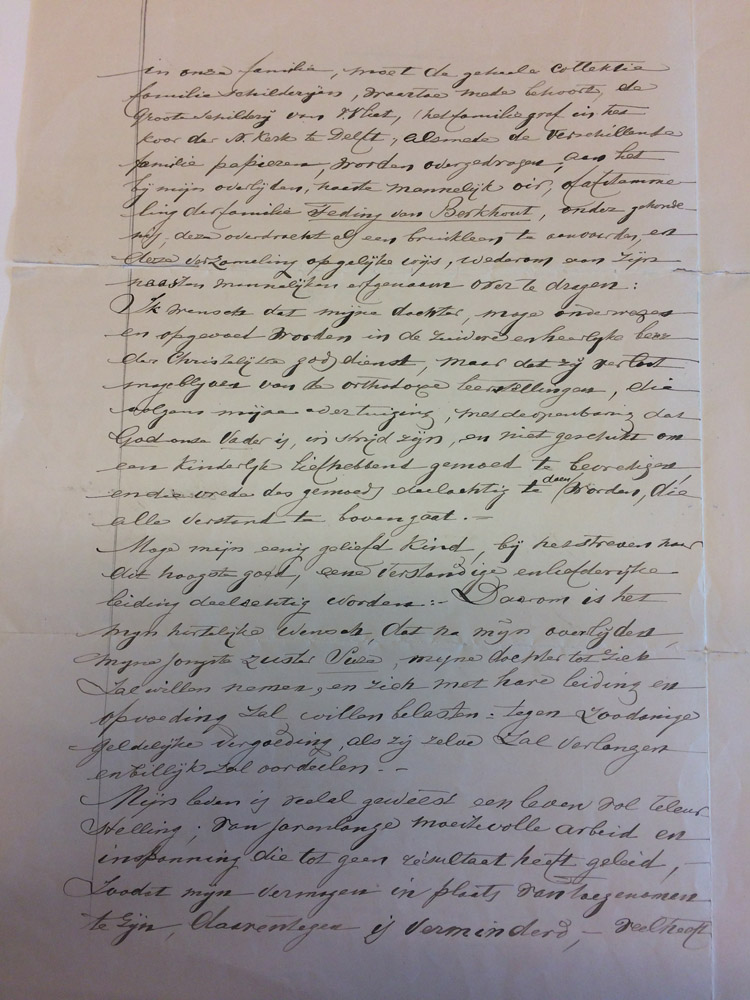 in onze familie, moet de geheele collektie
familie schilderijen, waartoe mede behoort, de
groote schilderij van v. Vliet, (het familiegraf in het
koor der N. Kerk te Delft, alsmede de verschillende
familie papieren, worden overgedragen, aan het
bij mijn overlijden, naaste mannelijk oir, of afstamme-
ling der familie Teding van Berkhout, onder gehoude-
nis, deze overdracht als een bruikleen te aanvaarden, en
deze verzameling op gelijke wijs, wederom aan zijn
naasten mannelijken erfgenaam over te dragen:
Ik wensch dat mijne dochter, moge onderwezen
en opgevoed worden in de zuivere en heerlijke leer
der Christelijke godsdienst, maar dat zij verlost
moge blijven van de orthodoxe leerstellingen, die
volgens mijne overtuiging, met de openbaring dat
God onze Vader is, in strijd zijn, en niet geschikt om
een kinderlijk liefhebbend gemoed te bevredigen,
en die vrede des gemoeds deelachtig te doen worden, die
alle verstand te boven gaat. –
Moge mijn eenig geliefd kind, bij het streven naar
dit hoogste goed, eene verstandige en liefderijke
leiding deelachtig worden: – Daarom is het
mijn hartelijke wensch, dat na mijn overlijden,
mijne jongste zuster, mijne dochter tot zich
zal willen nemen, en zich met hare leiding en
opvoeding zal willen belasten: tegen zoodanige
geldelijke vergoeding, als zij zelve zal verlangen
en billijk zal oordeelen. –
Mijn leven is veelal geweest een leven vol teleur
stelling; van jarenlange moeitevolle arbeid en
inspanning die tot geen résultaat heeft geleid, –
zoodat mijn vermogen in plaats van toegenomen
te zijn, daarentegen is verminderd, – veel heeft